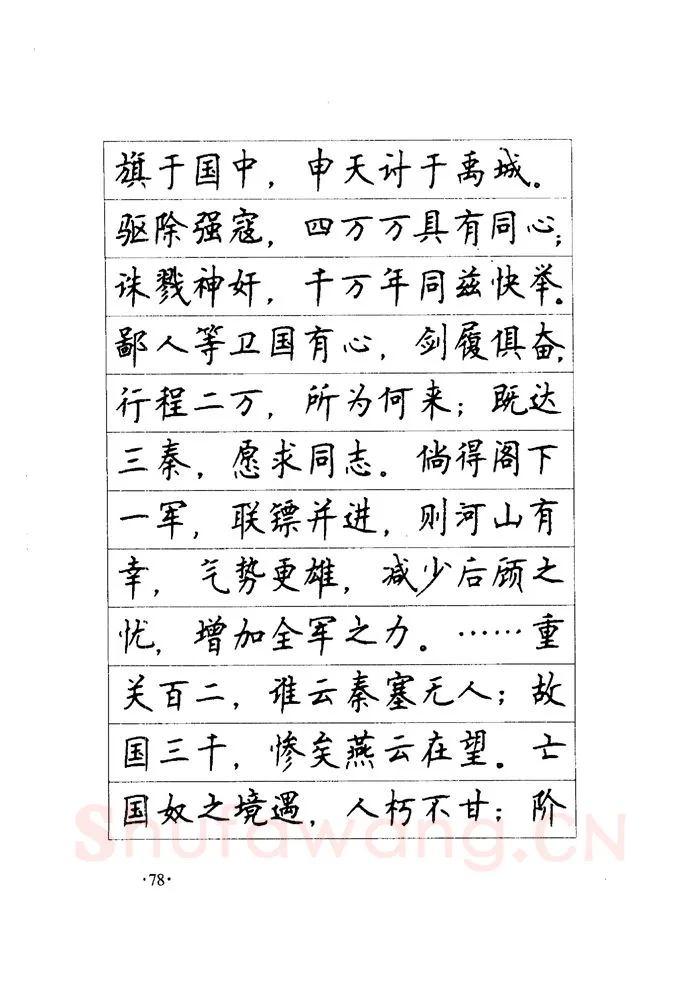 旗于国中，申天讨于禹城。
驱除强寇，四万万具有同心；
诛戮神奸，千万年同兹快举。
鄙人等卫国有心，剑履俱奋，
行程二万，所为何来；既达
三秦，愿求同志。倘得阁下
一军，联镖并进，则河山有
幸，气势更雄，减少后顾之
忧，增加全军之力。……重
关百二，谁云秦塞无人；故
国三千，惨矣燕云在望。亡
国奴之境遇，人朽不甘；阶
Shufawang.CN
·78·